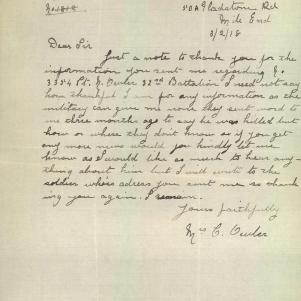 50A Gladstone Rd
Mile End
3/2/18
Dear Sir
Just a note to thank you for the
information you sent me regarding
3354 Pt. J. Owler 32nd Battalion I need not say
how thankful I am for any information as the
military can give me none they sent word to
me three months ago to say he was killed but
how or where they don't know so if you get
any more news would you kindly let me
know as I would like as much to hear any-
thing about him but I will write to the
soldier whose adress you sent me so thank
ing you again. I remain.
Yours faithfully
Mrs C. Owler